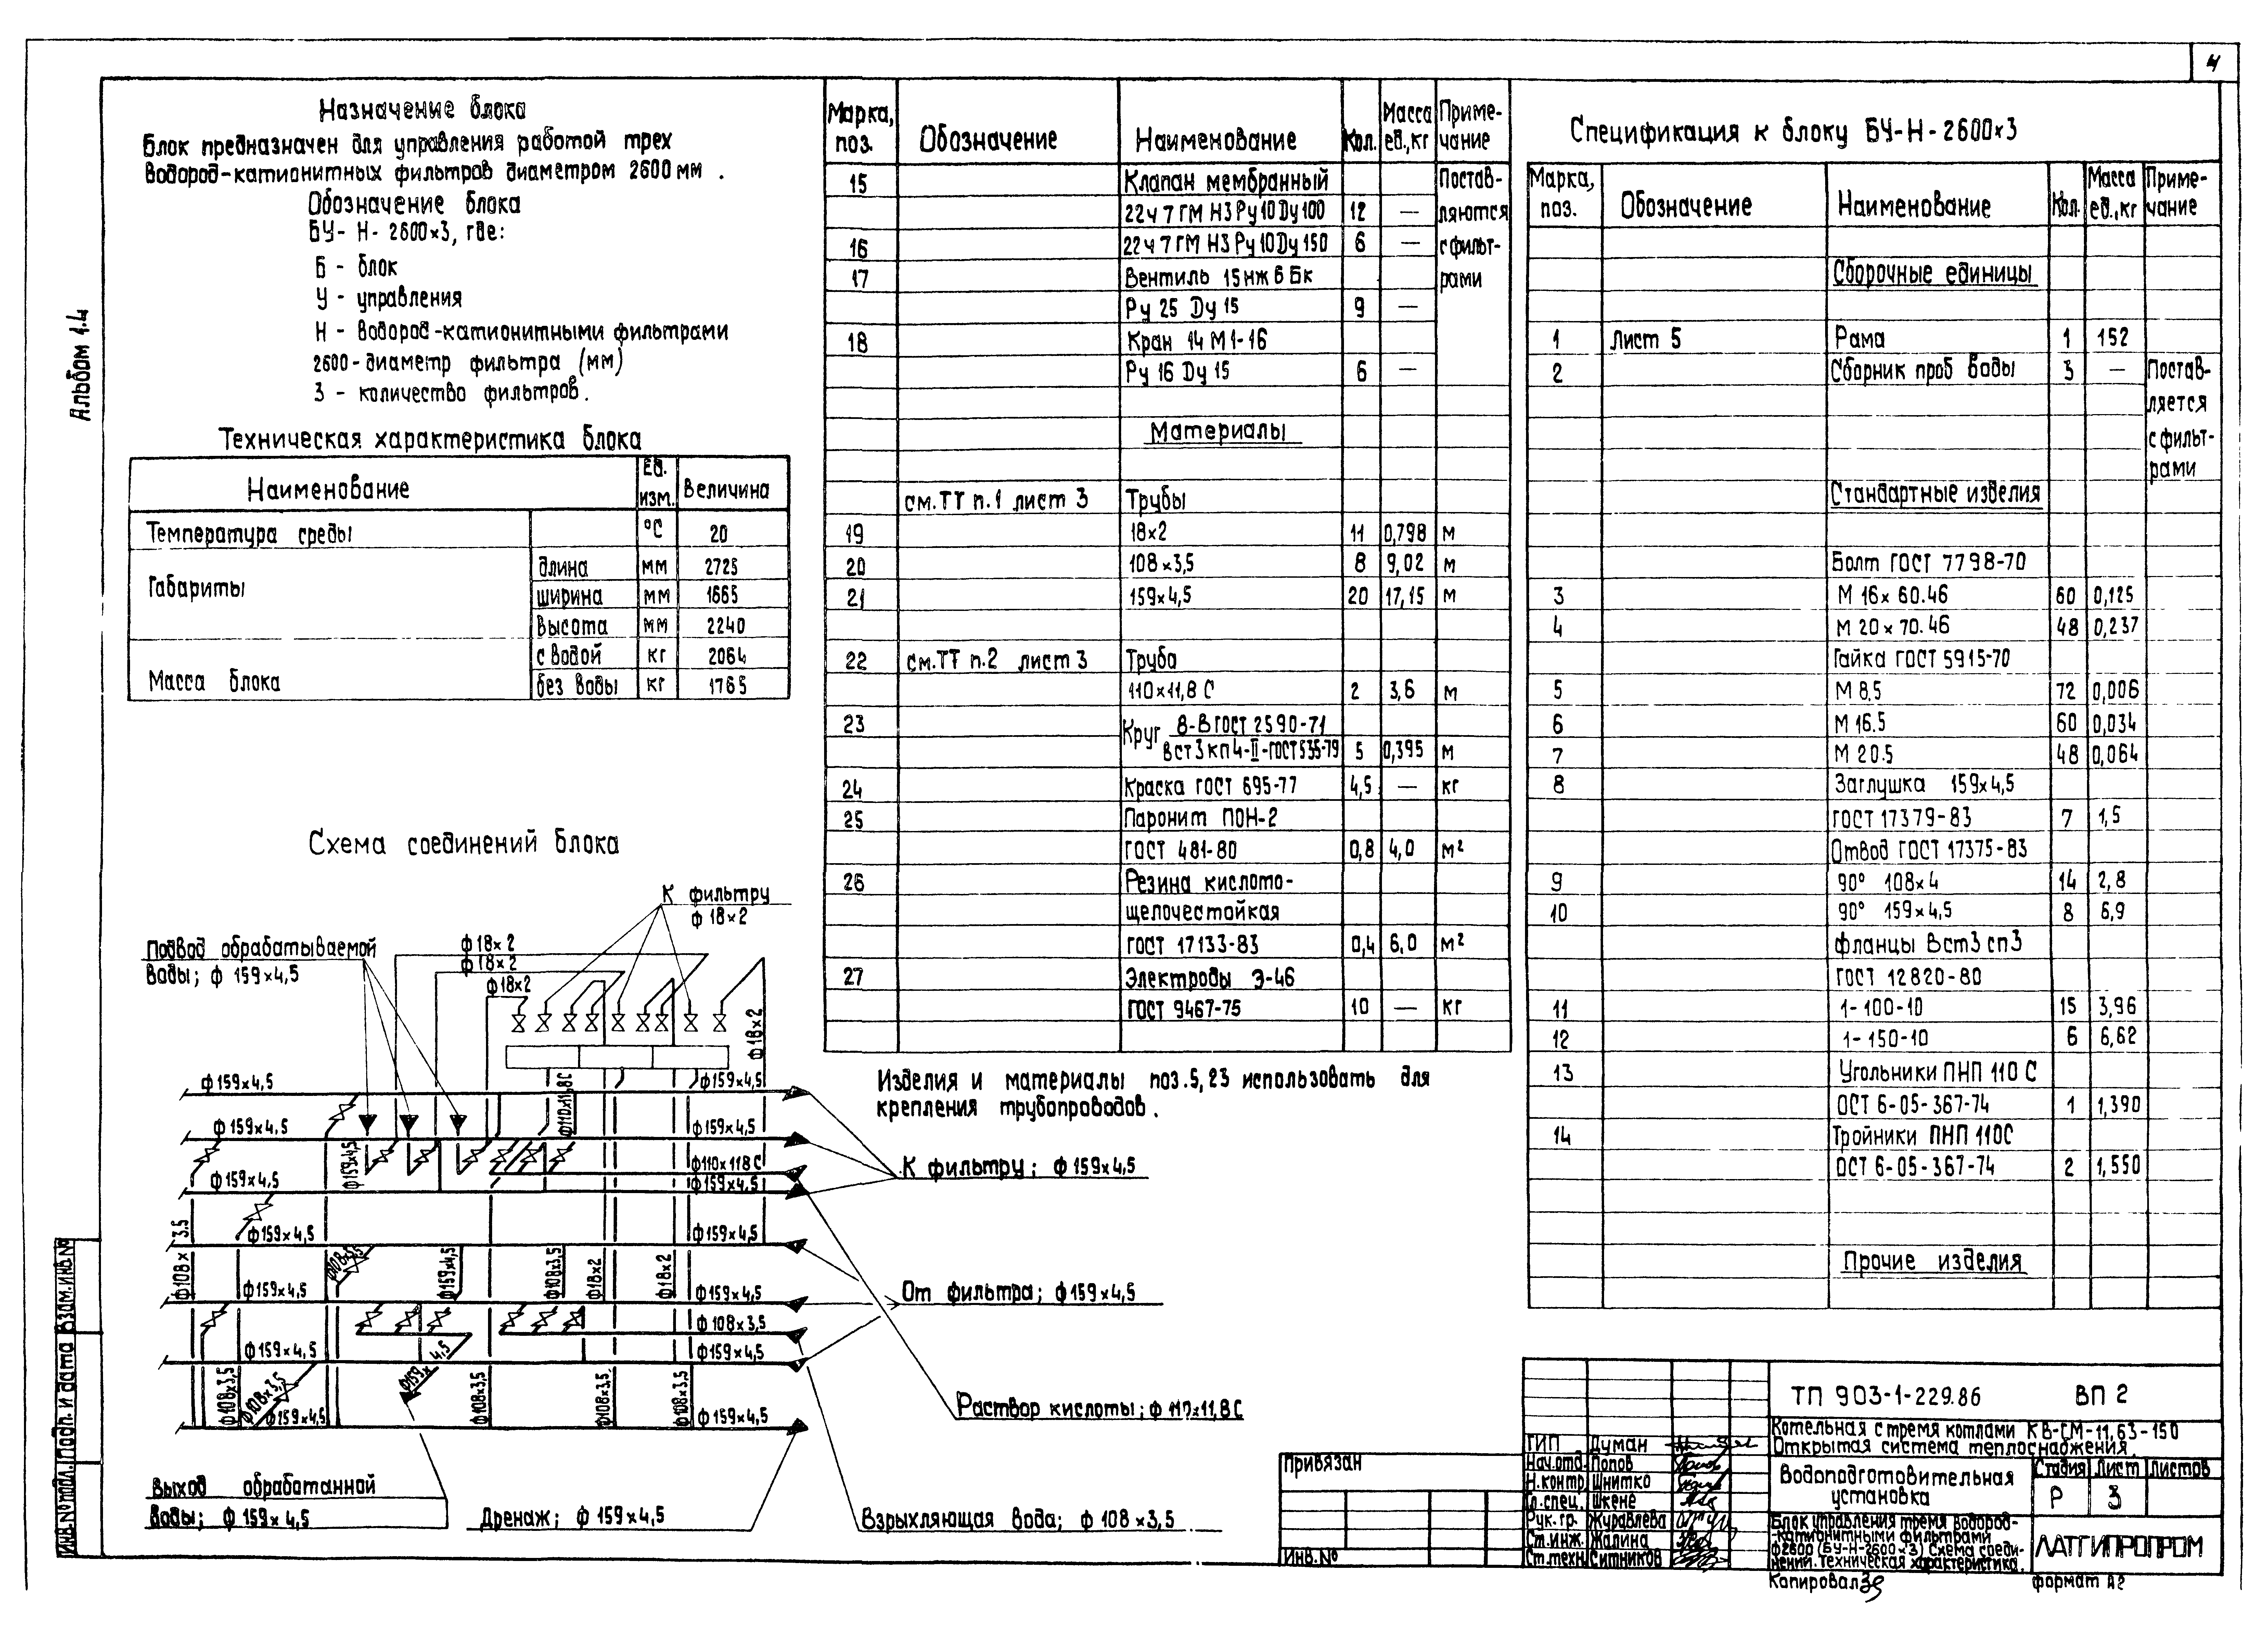 4
Альбом 1.4
Назначение блока
Блок предназначен для управления работой трех
водород-катионитных фильтров диаметром 2600 мм .
Обозначение блока
БУ- Н- 2600×3, где:
Б - блок
У - управления
Н - водород-катионитными фильтрами
2600-диаметр фильтра (мм)
3 - количество фильтров.
Техническая характеристика блока
Наименование Ед. изм. Величина
Температура среды °С 20
Габариты длина мм 2725
ширина мм 1665
высота мм 2240
Масса блока с водой кг 2064
без воды кг 1765
Схема соединений блока
К фильтру
ф 18×2
Подвод обрабатываемой
воды; ф 159×4,5
ф 18×2
ф 18×2
ф 18×2
ф 18×2
ф 159×4,5
ф 159×4,5
ф 110×11,8С
ф 159×4,5
ф 159×4,5
ф 159×4,5
ф 110×118С
ф 159×4,5
ф 159×4,5
ф 108× 3,5
ф 159×4,5
ф 159×4,5
ф 108×3,5
ф 159×4,5
ф 108×3,5
ф 18×2
ф 18×2
ф 159×4,5
ф 159×4,5
ф 108×3,5
ф 159×4,5
ф 159×4,5
ф 159× 4,5
ф 108×3,5
ф 108×3,5
ф 159×4,5
ф 108×3,5
ф 108×3,5
ф 108×3,5
ф 159×4,5
К фильтру; ф 159×4,5
От фильтра; ф 159×4,5
Раствор кислоты; ф 110×11,8С
Взрыхляющая вода; ф 108×3,5
Выход обработанной
воды; ф 159× 4,5
Дренаж; ф 159×4,5
Марка, поз. Обозначение Наименование Кол. Масса ед.,кг Приме-чание
15 Клапан мембранный Постав-
22ч 7 ГМ НЗ Ру10 Ду100 12 — ляются
16 22ч 7 ГМ НЗ Ру10 Ду150 6 — с фильт-
17 Вентиль 15нж 6 Бк рами
Ру 25 Ду 15 9 —
18 Кран 14 М1-16
Ру 16 Ду 15 6 —
Материалы
см.ТТ п.1 лист 3 Трубы
19 18×2 11 0,798 м
20 108×3,5 8 9,02 м
21 159×4,5 20 17,15 м
22 см.ТТ п.2 лист 3 Труба
110×11,8 С 2 3,6 м
23 Круг 8-В ГОСТ 2590-71
Вст3кп4-II-ГОСТ535-79 5 0,395 м
24 Краска ГОСТ 695-77 4,5 — кг
25 Паронит ПОН-2
ГОСТ 481-80 0,8 4,0 м²
26 Резина кислото-
щелочестойкая
ГОСТ 17133-83 0,4 6,0 м²
27 Электроды Э-46
ГОСТ 9467-75 10 — кг
Изделия и материалы поз.5,23 использовать для
крепления трубопроводов.
Спецификация к блоку БУ-Н-2600×3
Марка, поз. Обозначение Наименование Кол. Масса ед.,кг Приме-чание
Сборочные единицы
1 Лист 5 Рама 1 152
2 Сборник проб воды 3 — Постав-
ляется
с фильт-
рами
Стандартные изделия
Болт ГОСТ 7798-70
3 М 16× 60.46 60 0,125
4 М 20×70.46 48 0,237
Гайка ГОСТ 5915-70
5 М 8.5 72 0,006
6 М 16.5 60 0,034
7 М 20.5 48 0,064
8 Заглушка 159×4,5
ГОСТ 17379-83 7 1,5
Отвод ГОСТ 17375-83
9 90° 108×4 14 2,8
10 90° 159×4,5 8 6,9
фланцы Вст3 сп3
ГОСТ 12820-80
11 1-100-10 15 3,96
12 1-150-10 6 6,62
13 Угольники ПНП 110 С
ОСТ 6-05-367-74 1 1,390
14 Тройники ПНП 110С
ОСТ 6-05-367-74 2 1,550
Прочие изделия
ТП 903-1-229.86 ВП 2
Котельная с тремя котлами КВ-ГМ-11,63-150
Открытая система теплоснабжения.
ГИП Думан
Нач.отд. Попов
Н.контр. Шнитко
Гл.спец. Шкене
Рук. гр. Журавлева
Ст.инж. Жалина
Ст.техн. Ситников
Водоподготовительная
установка
Стадия Лист Листов
Р 3
Блок управления тремя водород-
-катионитными фильтрами
ф2600 (БУ-Н-2600×3) Схема соеди-
нений. Техническая характеристика.
ЛАТГИПРОПРОМ
Привязан
Инв.№
Копировал
формат А2
Инв.№ подл. Подп. и дата Взам.инв.№